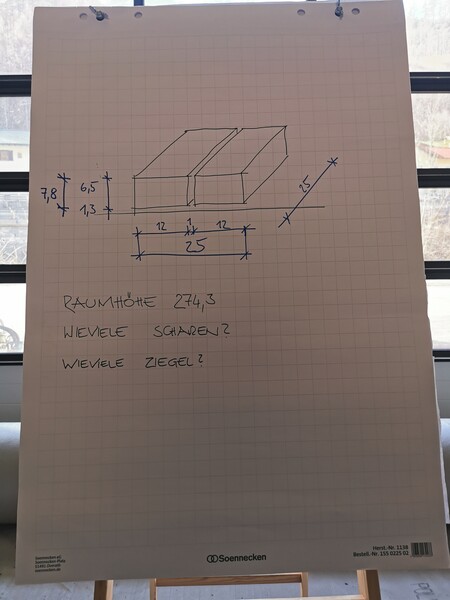 7,8
6,5
1,3
12 1 12
25
25
RAUMHÖHE 274,3
WIEVIELE SCHAREN?
WIEVIELE ZIEGEL?
Soennecken
Herst.-Nr. 1138
Bestell.-Nr. 155 0225 02